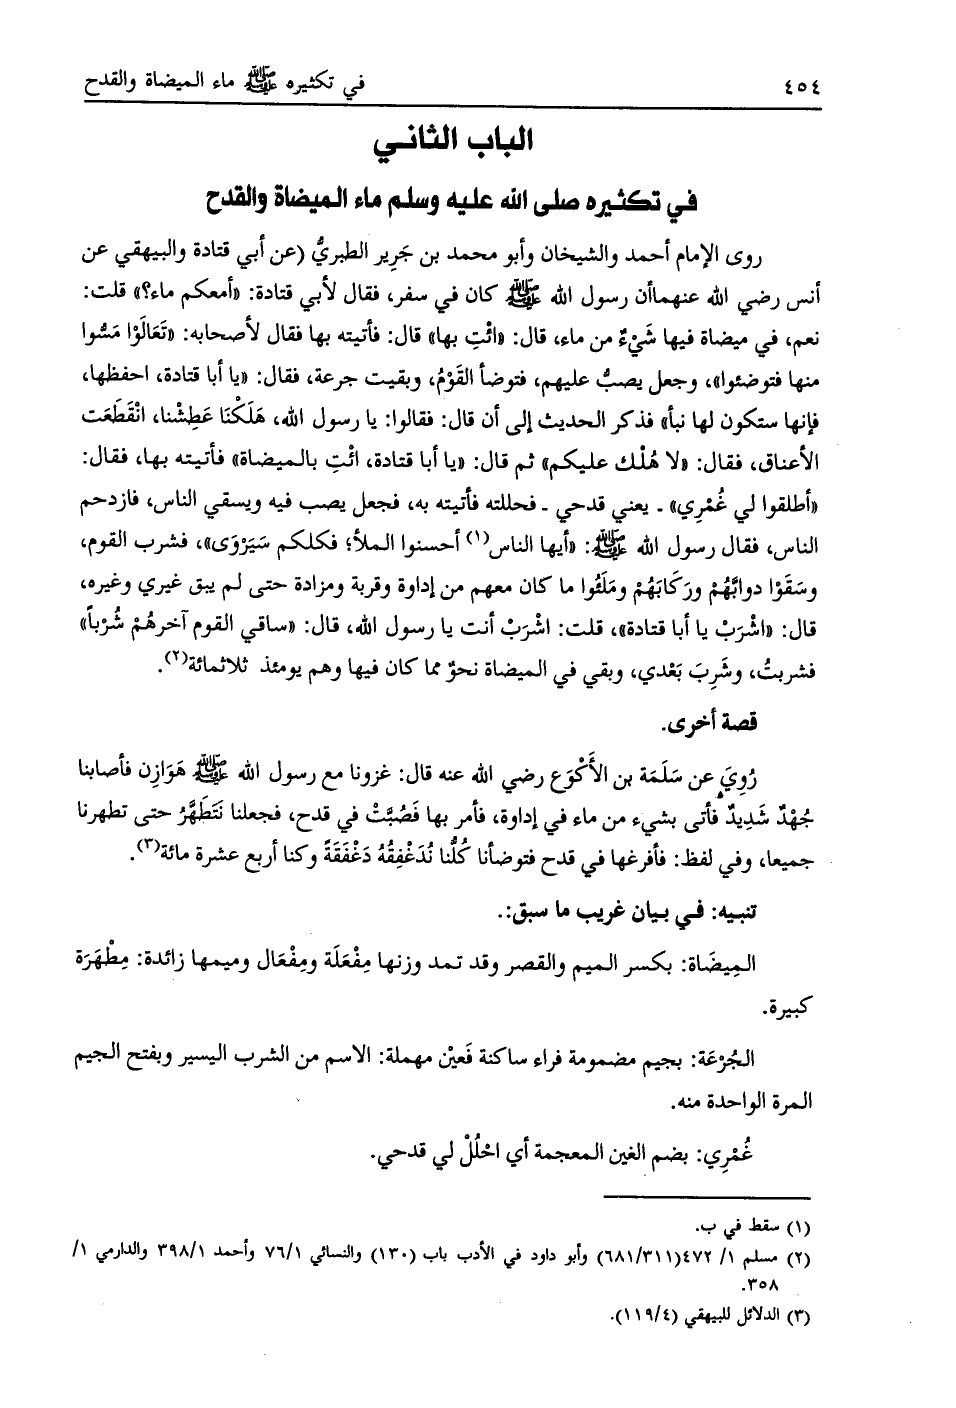 ٤٥٤ في تكثيره ﷺ ماء الميضاة والقدح
الباب الثاني
في تكثيره صلى الله عليه وسلم ماء الميضاة والقدح
روى الإمام أحمد والشيخان وأبو محمد بن جَرِير الطبريُّ (عن أبي قتادة والبيهقي عن
أنس رضي الله عنهماأن رسول الله ﷺ كان في سفر، فقال لأبي قتادة: «أمعكم ماء؟» قلت:
نعم، في ميضاة فيها شَيْءٌ من ماء، قال: «ائْتِ بها» قال: فأتيته بها فقال لأصحابه: «تَعَالَوْا مَسُّوا
منها فتوضئوا»، وجعل يصبُّ عليهم، فتوضأ القَوْمُ، وبقيت جرعة، فقال: «يا أبا قتادة، احفظها،
فإنها ستكون لها نبأ» فذكر الحديث إلى أن قال: فقالوا: يا رسول الله، هَلَكْنَا عَطِشْنا، انْقَطَعَت
الأعناق، فقال: «لا هُلْك عليكم» ثم قال: «يا أبا قتادة، ائْتِ بالميضاة» فأتيته بها، فقال:
«أطلقوا لي غُمْرِي» ـ يعني قدحي ـ فحللته فأتيته به، فجعل يصب فيه ويسقي الناس، فازدحم
الناس، فقال رسول الله ﷺ: «أيها الناس(١) أحسنوا الملأ؛ فكلكم سَيَرْوَى»، فشرب القوم،
وسَقَوْا دوابَّهُمْ ورَكَابَهُمْ ومَلَئُوا ما كان معهم من إداوة وقربة ومزادة حتى لم يبق غيري وغيره،
قال: «اشْرَبْ يا أبا قتادة»، قلت: اشْرَبْ أنت يا رسول الله، قال: «ساقي القوم آخرهُمْ شُرْباً»
فشربتُ، وشَرِبَ بَعْدي، وبقي في الميضاة نحوٌ مما كان فيها وهم يومئذ ثلاثمائة(٢).
قصة أخرى.
رُوِيَ عن سَلَمَة بن الأَكْوَع رضي الله عنه قال: غزونا مع رسول الله ﷺ هَوَازِن فأصابنا
جُهْدٌ شَدِيدٌ فأتى بشيء من ماء في إداوة، فأمر بها فَصُبَّتْ في قدح، فجعلنا نَتَطَهَّرُ حتى تطهرنا
جميعا، وفي لفظ: فأفرغها في قدح فتوضأنا كُلُّنا نُدَغْفِقُهُ دَغْفَقَةً وكنا أربع عشرة مائة(٣).
تنبيه: في بيان غريب ما سبق:.
المِيضَاة: بكسر الميم والقصر وقد تمد وزنها مِفْعَلَة ومِفْعَال وميمها زائدة: مِطْهَرَة
كبيرة.
الجُرْعَة: بجيم مضمومة فراء ساكنة فَعَيْن مهملة: الاسم من الشرب اليسير وبفتح الجيم
المرة الواحدة منه.
غُمْرِي: بضم الغين المعجمة أي احْلُلْ لي قدحي.
(١) سقط في ب.
(٢) مسلم ١/ ٤٧٢(٦٨١/٣١١) وأبو داود في الأدب باب (١٣٠) والنسائي ٧٦/١ وأحمد ٣٩٨/١ والدارمي ١/
٣٥٨.
(٣) الدلائل للبيهقي (١١٩/٤).